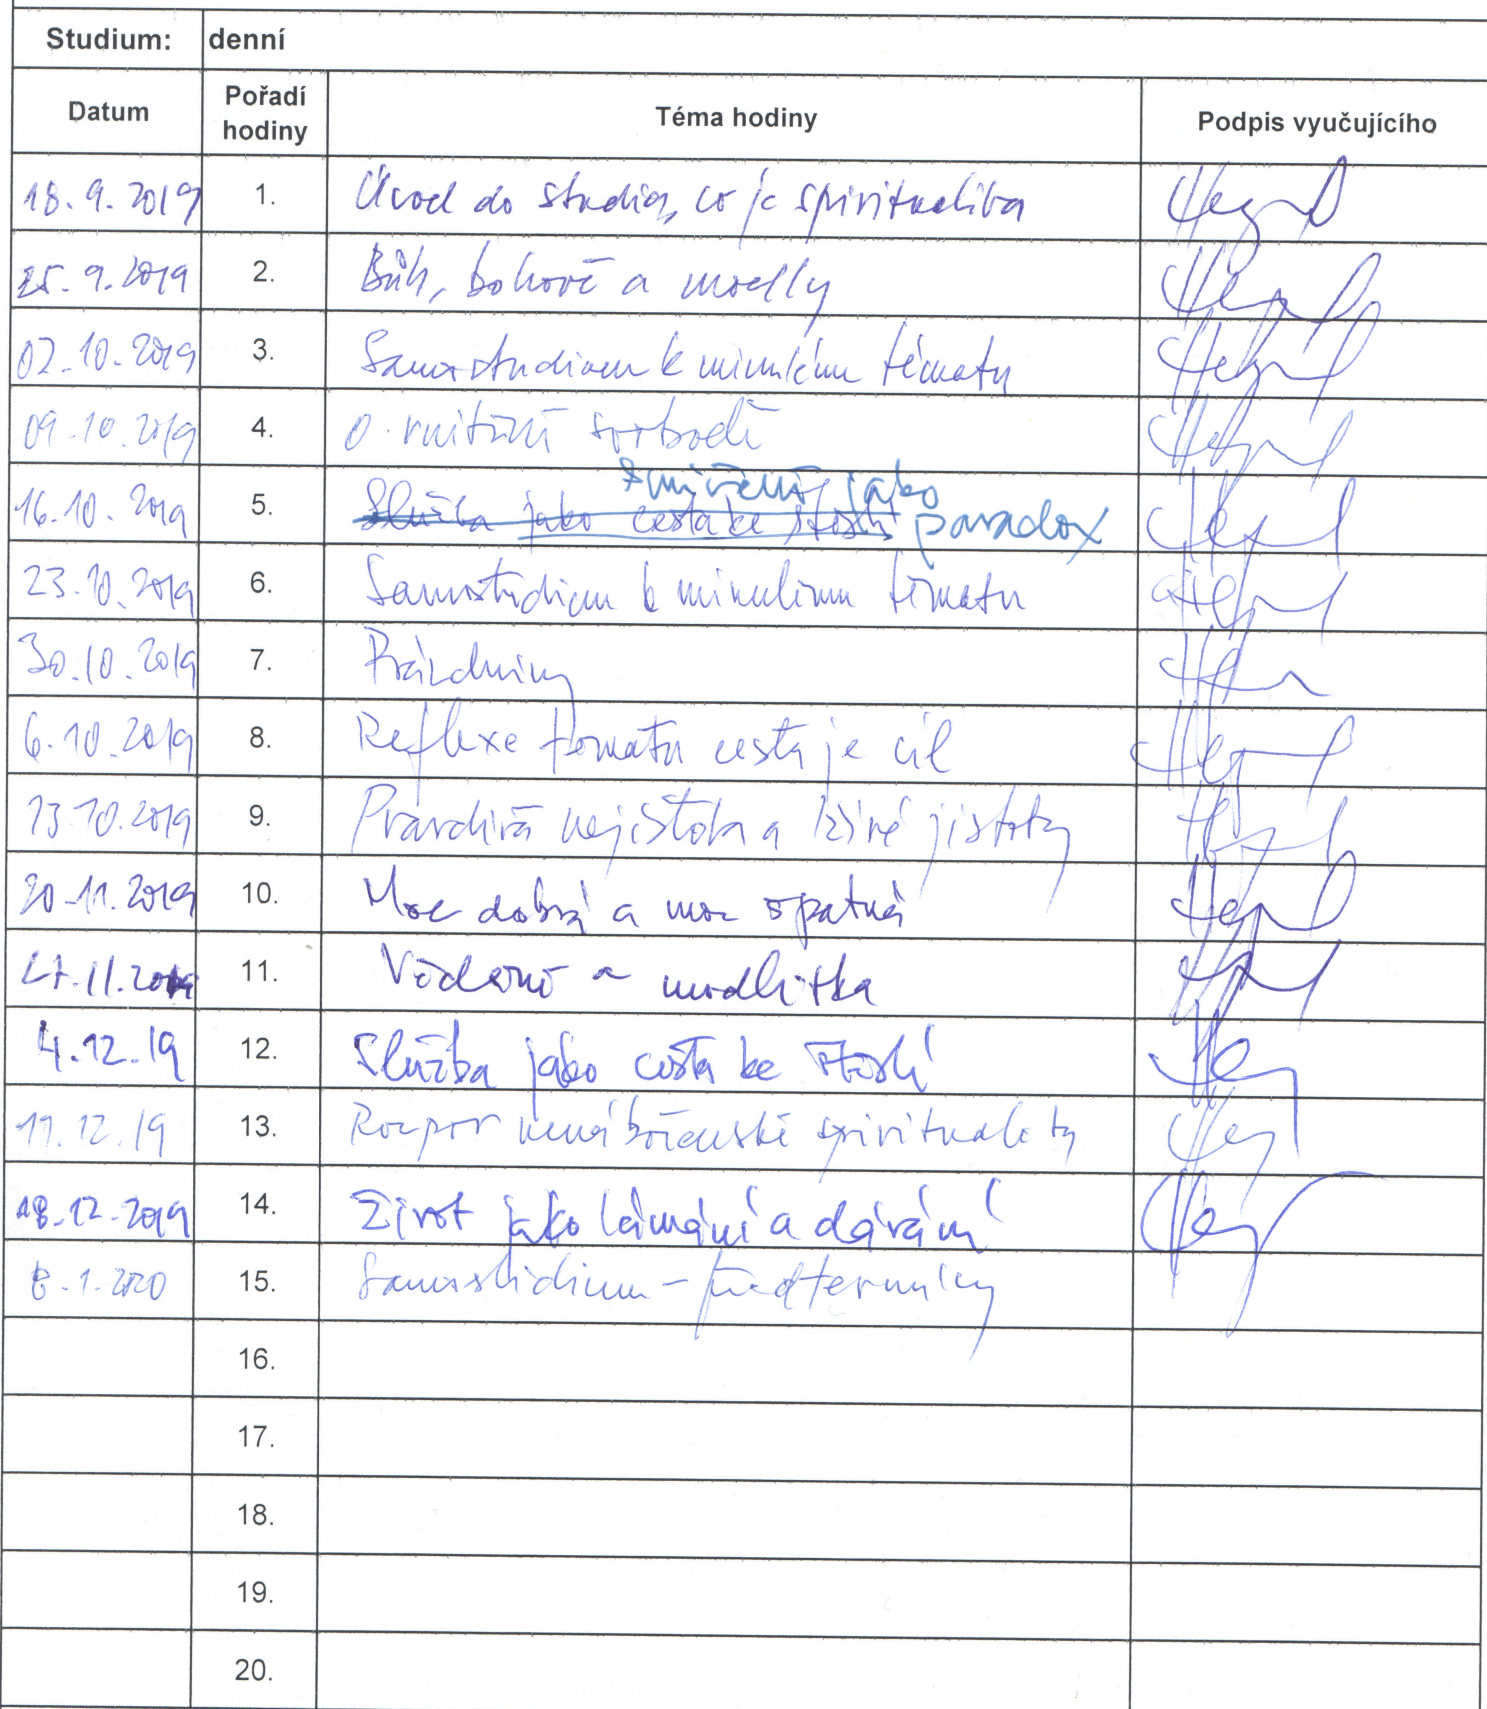 Studium: denní
Datum Pořadí hodiny Téma hodiny Podpis vyučujícího
18.9.2019 1. Úvod do studia, co je spiritualita
25.9.2019 2. Bůh, bohové a modly
02.10.2019 3. Samostudium k minulému tématu
09.10.2019 4. O vnitřní svobodě
smíření jako
16.10.2019 5. Služba jako cesta ke štěstí paradox
23.10.2019 6. Samostudium k minulému tématu
30.10.2019 7. Prázdniny
6.10.2019 8. Reflexe tématu cesta je cíl
13.10.2019 9. Pravdivá nejistota a lživé jistoty
20.11.2019 10. Moc dobrá a moc špatná
27.11.2019 11. Vědomí a modlitba
4.12.19 12. Služba jako cesta ke štěstí
11.12.19 13. Rozpor nenáboženské spirituality
18.12.2019 14. Život jako lámání a dávání
8.1.2020 15. Samostudium - předtermíny
16.
17.
18.
19.
20.